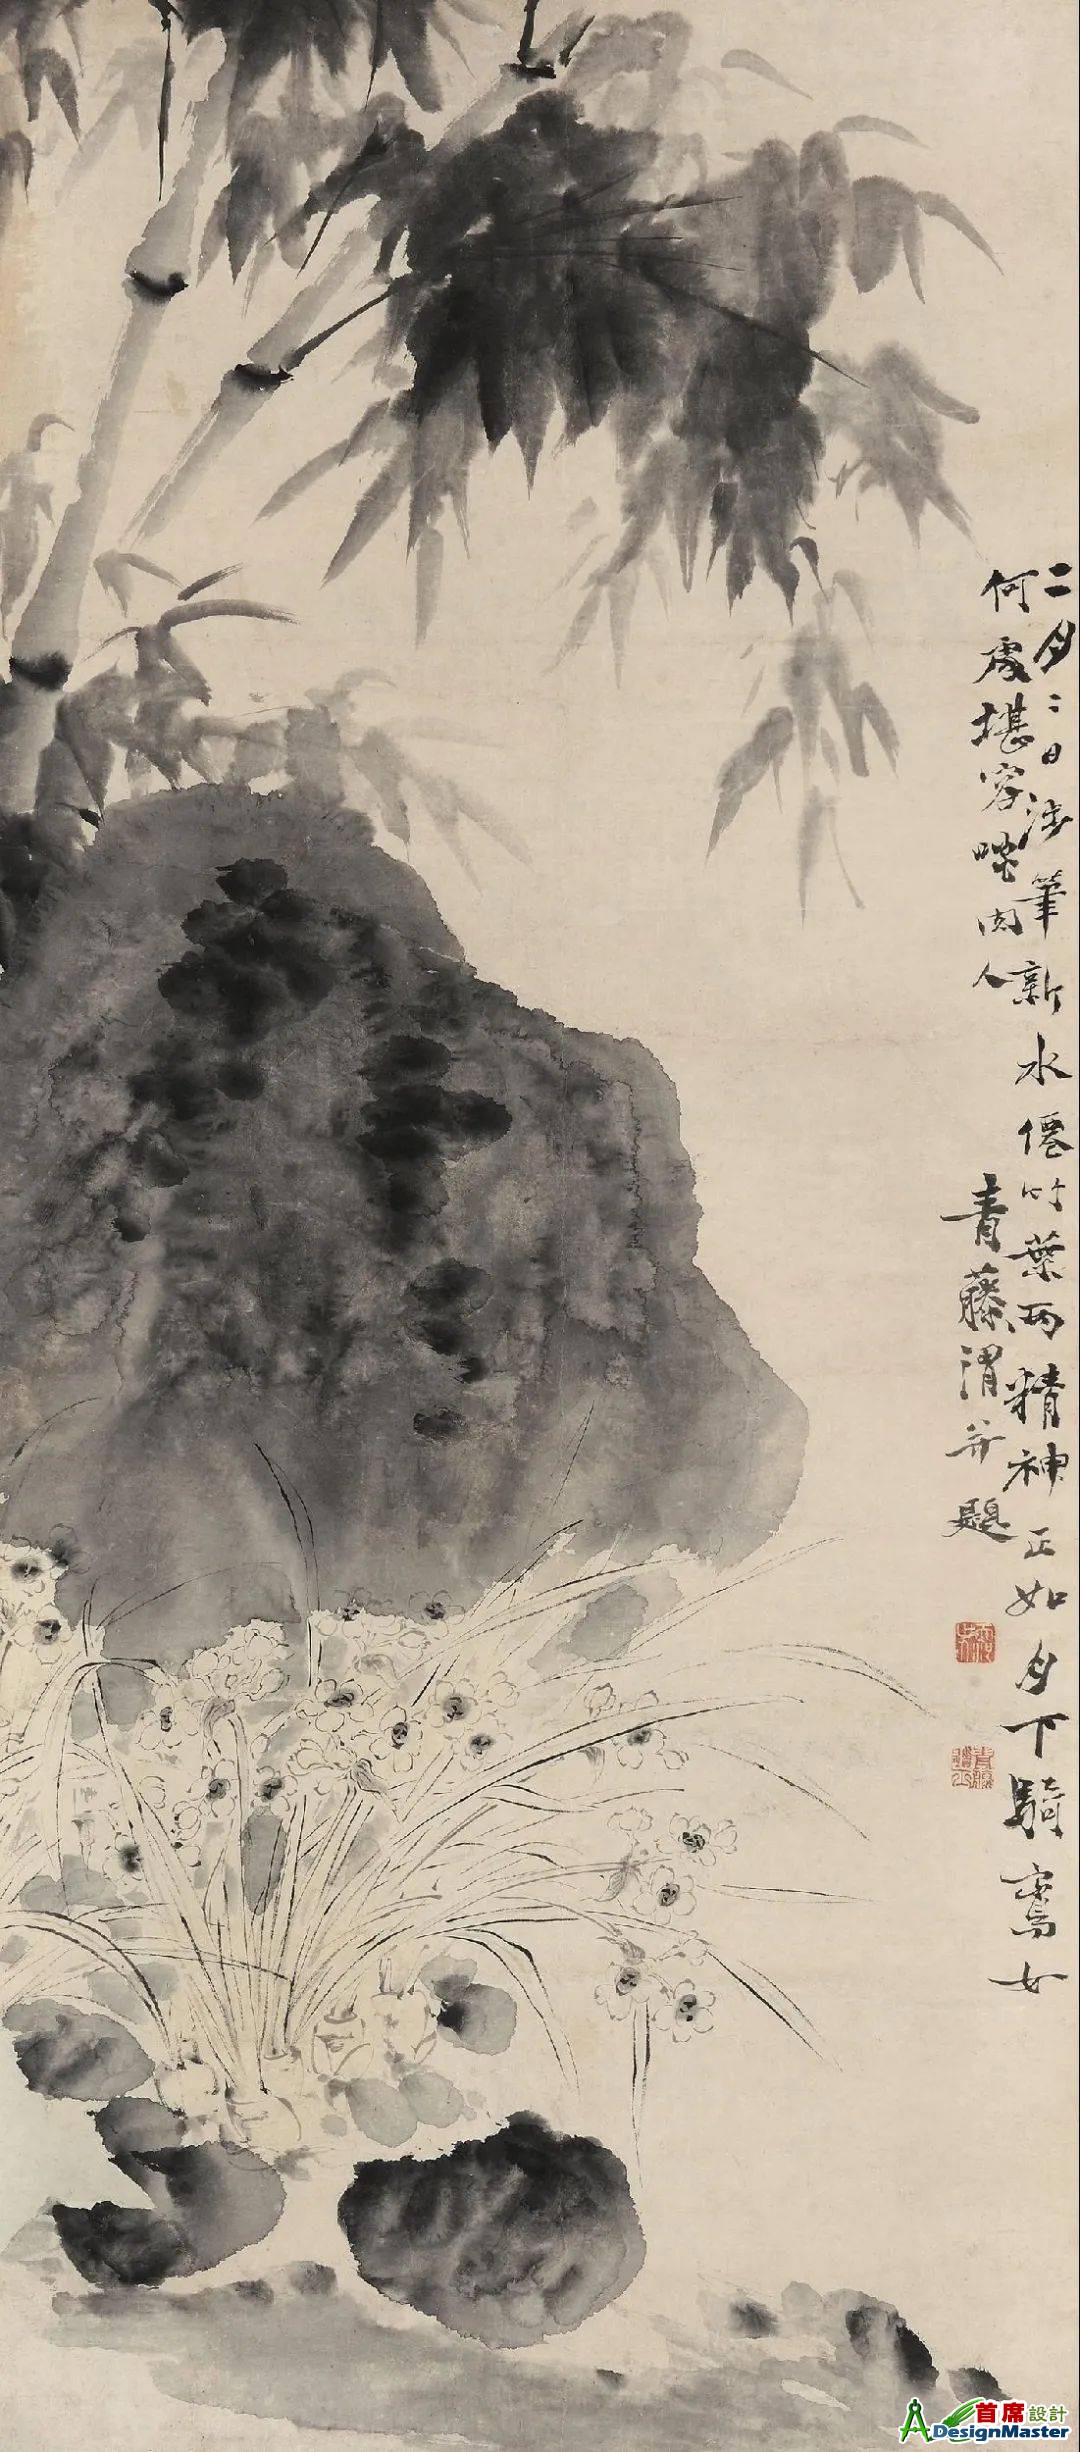 二月二日涉筆新水僊竹葉兩精神正如月下騎鸞女
何處堪容啖肉人
青藤渭并題
首席設計
ADesignMaster